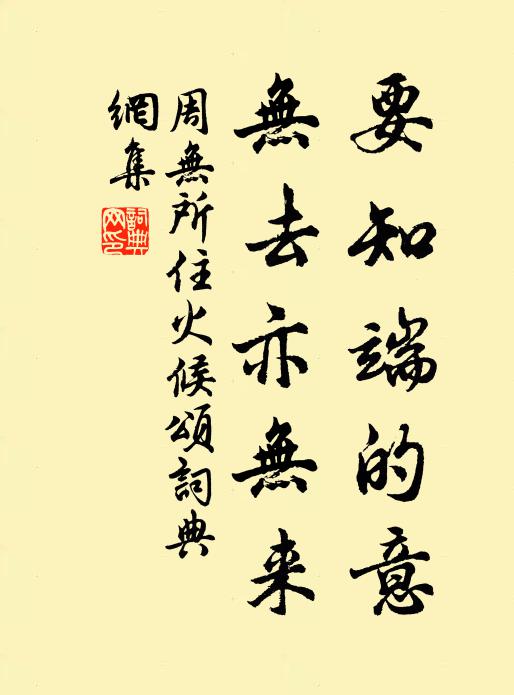 要知端的意
無去亦無来
周無所住火候頌詞典
網集
詞典網印